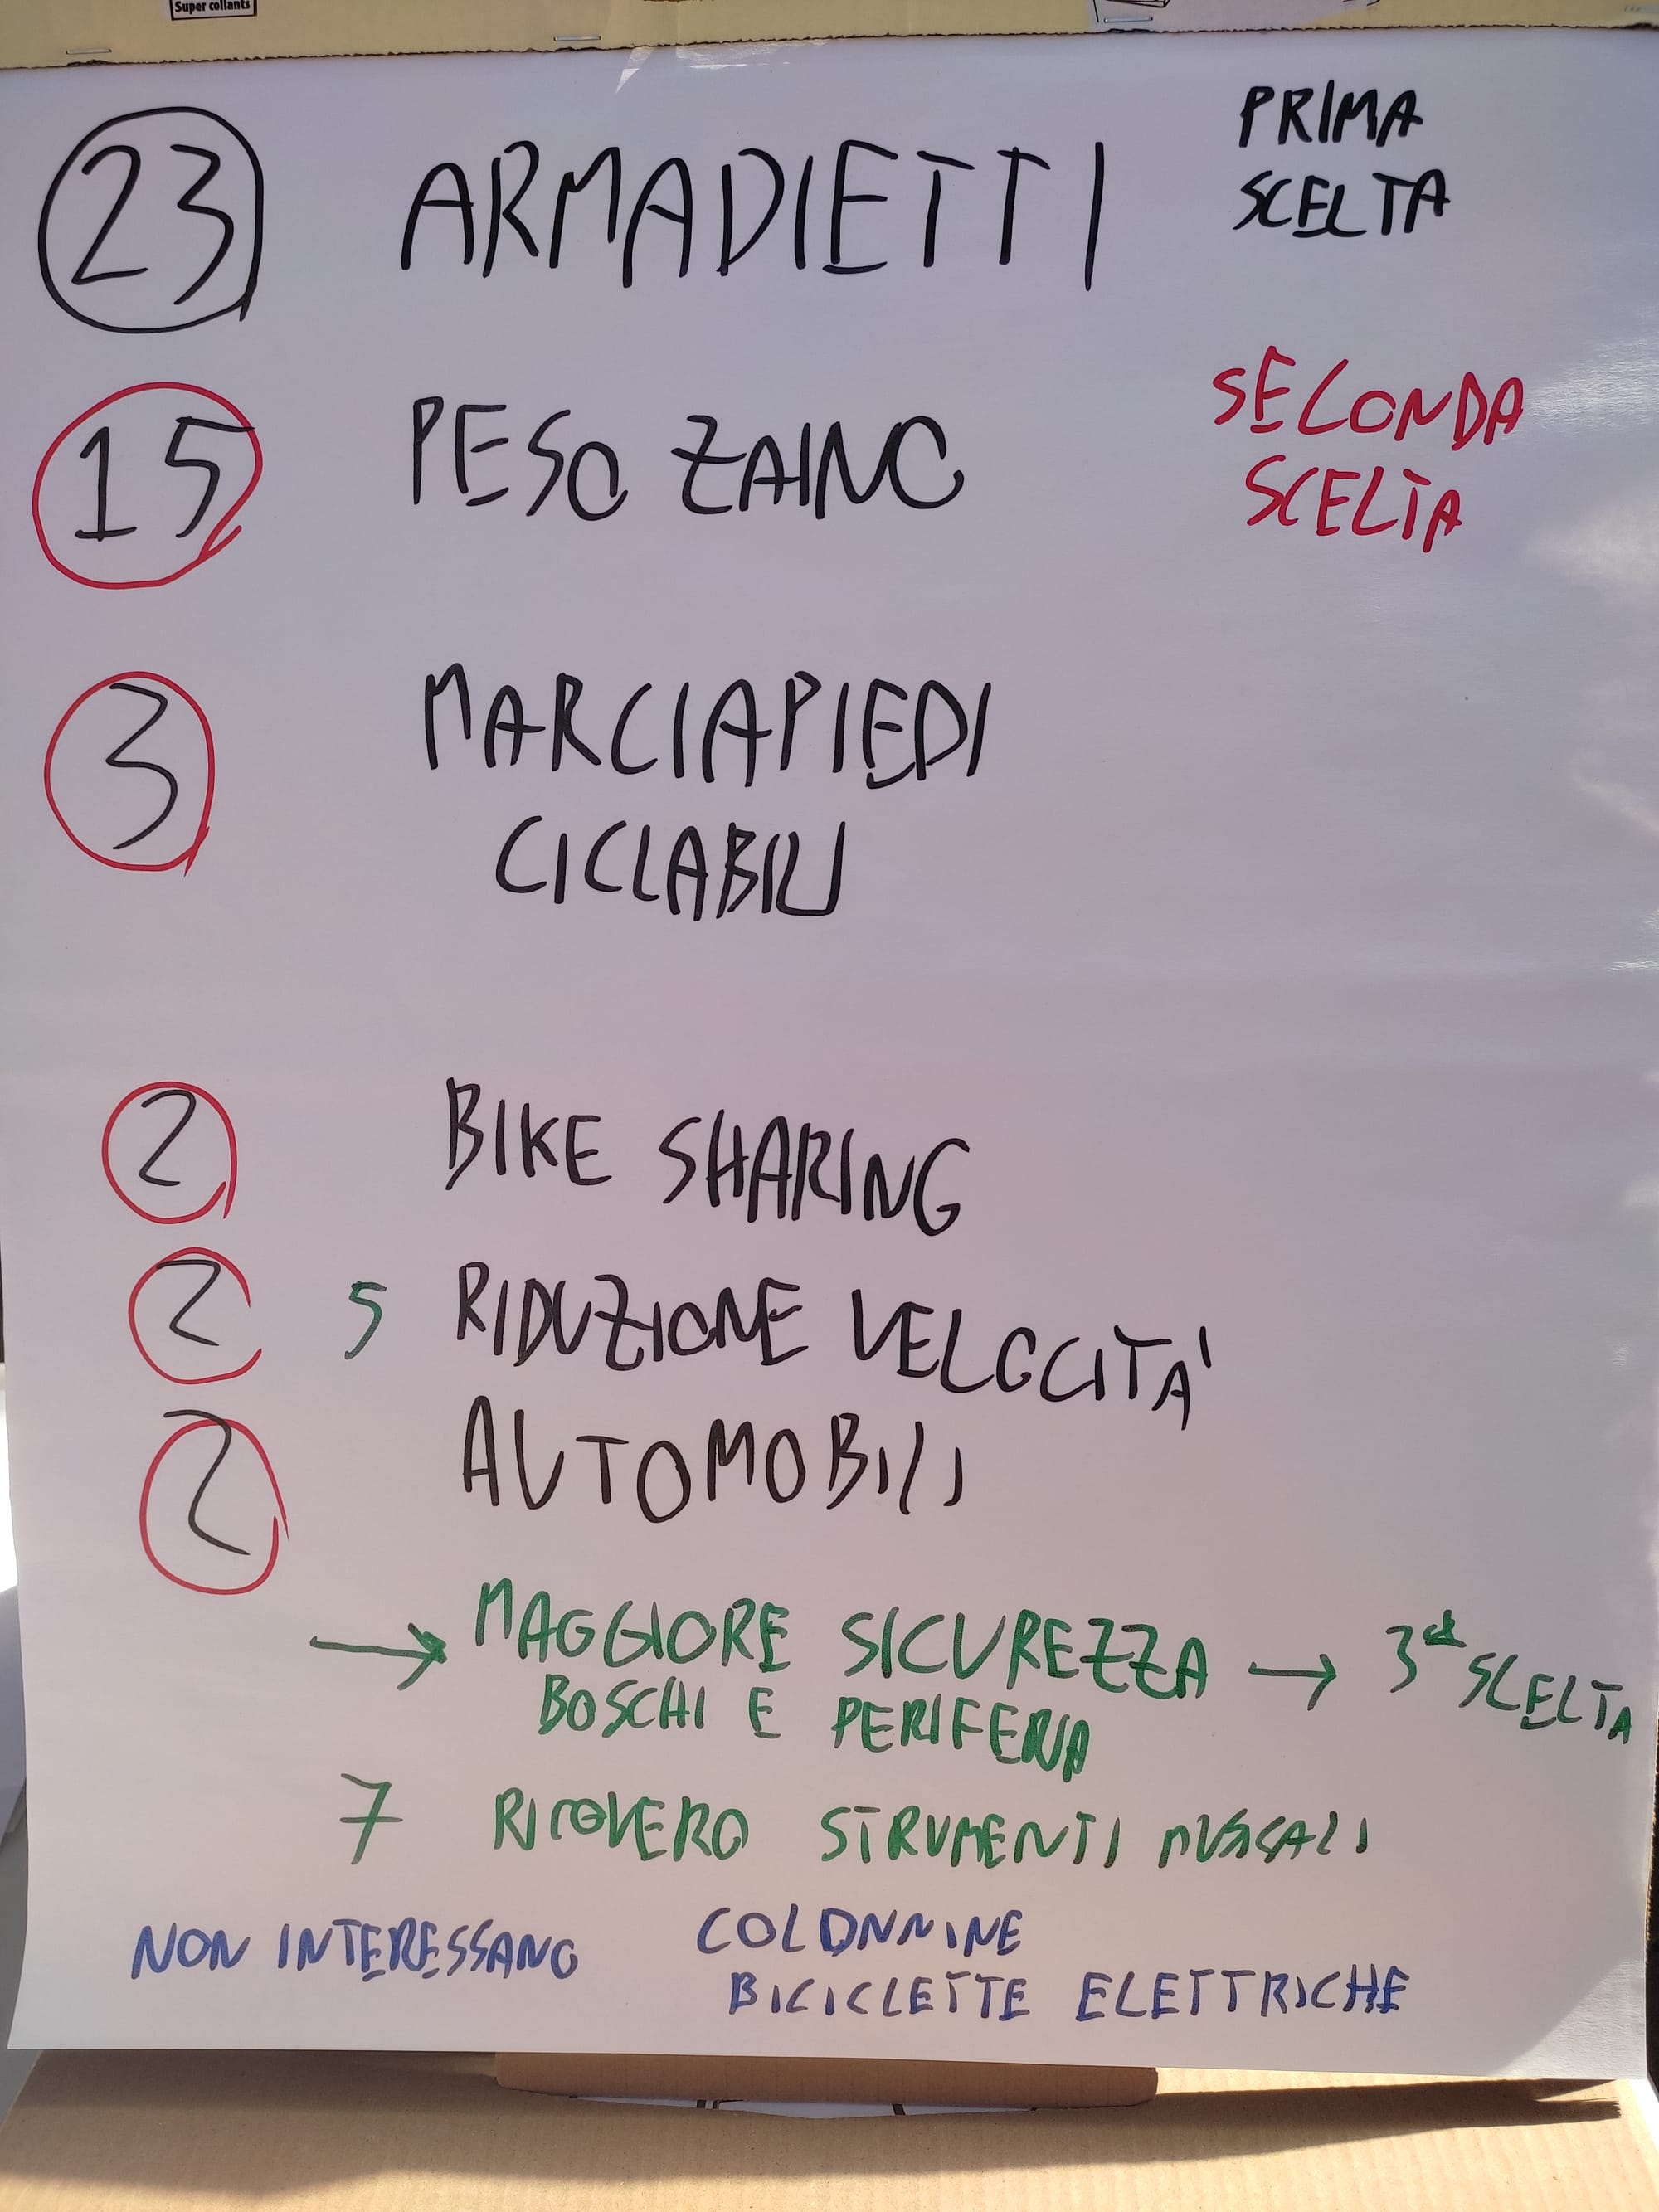 Super collants
23 ARMADIETTI PRIMA
SCELTA
15 PESO ZAINO SECONDA
SCELTA
3 MARCIAPIEDI
CICLABILI
2 BIKE SHARING
2 5 RIDUZIONE VELOCITA'
2 AUTOMOBILI
→ MAGGIORE SICUREZZA → 3a SCELTA
BOSCHI E PERIFERIA
7 RICOVERO STRUMENTI MUSICALI
NON INTERESSANO COLONNINE
BICICLETTE ELETTRICHE